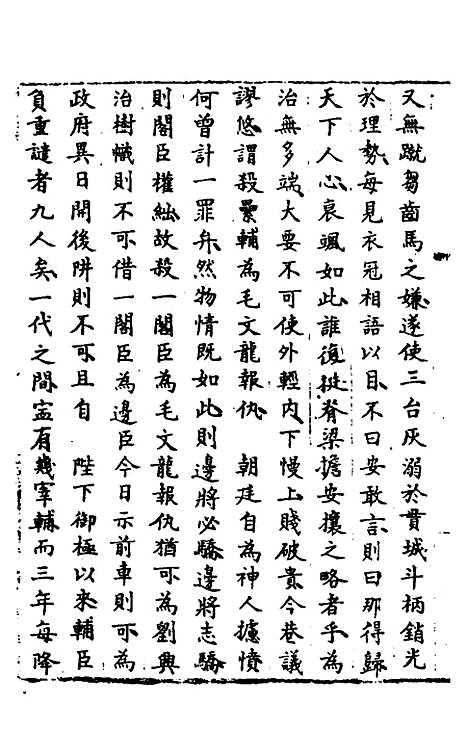 又無蹴芻齒馬之嫌遂使三台灰溺於貫城斗柄銷光
於理勢每見衣冠相語以目不曰安敢言則曰那得歸
天下人心哀颯如此誰復挺脊梁擔安攘之略者乎為
治無多端大要不可使外輕內下慢上賤破貴今巷議
謬悠謂殺纍輔為毛文龍報仇 朝廷自為神人攄憤
何曾計一罪弁然物情既如此則邊將必驕邊將志驕
則閣臣權絀故殺一閣臣為毛文龍報仇猶可為劉興
治樹幟則不可借一閣臣為邊臣今日示前車則可為
政府異日開後阱則不可且自 陛下御極以來輔臣
負重譴者九人矣一代之間寍有幾宰輔而三年每降